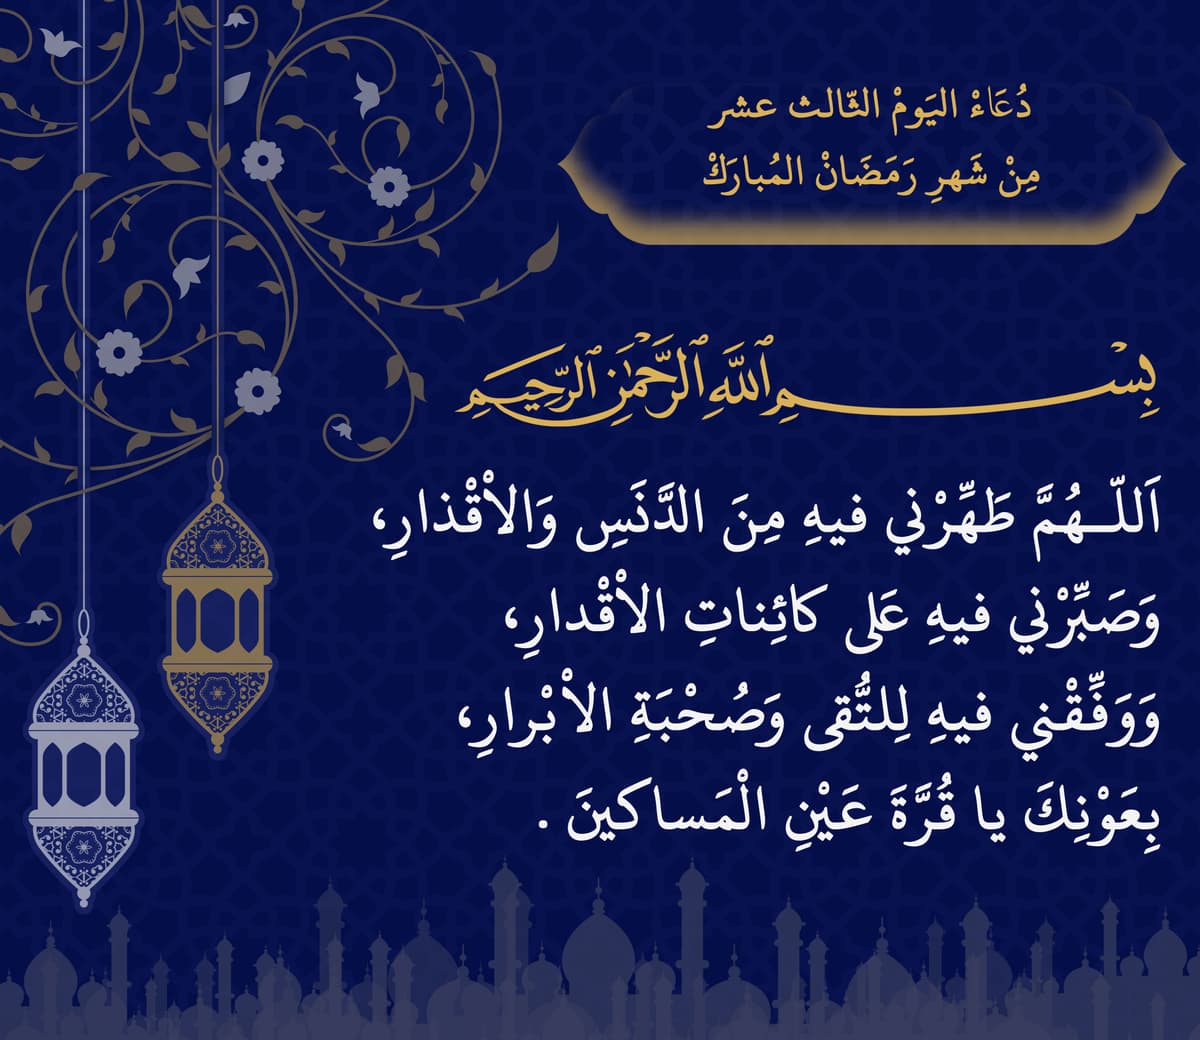 دُعَاءْ اليَومْ الثّالث عشر
مِنْ شَهرِ رَمَضَانْ المُبارَكْ
بِسْمِ اللَّهِ الرَّحْمَٰنِ الرَّحِيمِ
اَللّـهُمَّ طَهِّرْني فيهِ مِنَ الدَّنَسِ وَالاْقْذارِ،
وَصَبِّرْني فيهِ عَلى كائِناتِ الاْقْدارِ،
وَوَفِّقْني فيهِ لِلتُّقى وَصُحْبَةِ الاْبْرارِ،
بِعَوْنِكَ يا قُرَّةَ عَيْنِ الْمَساكينَ .